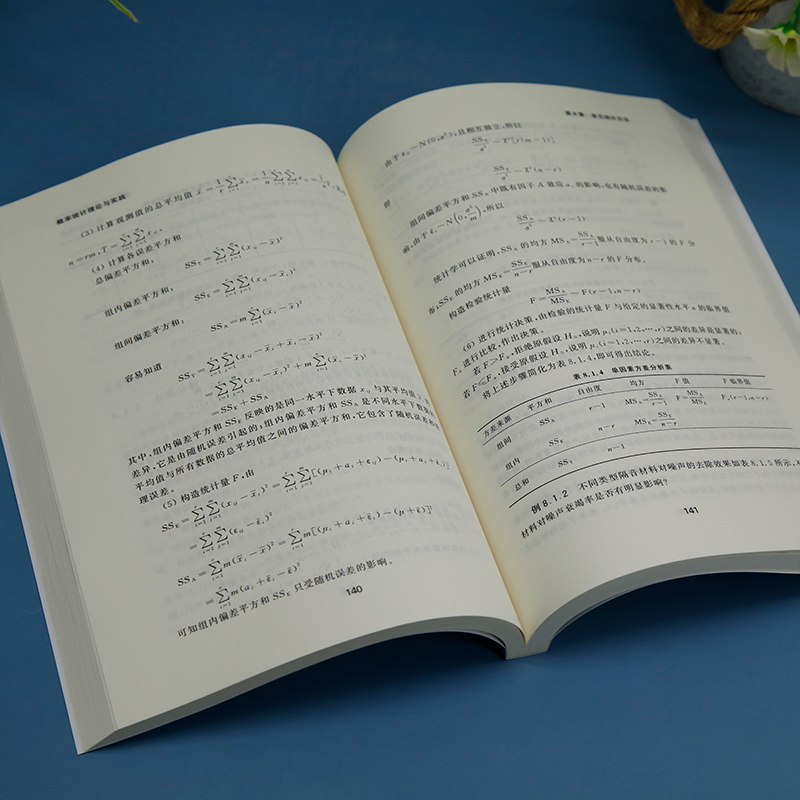 概率统计理论与实践
(3) 计算观测值的总平均值
n=rm, T=∑∑x_ij。
(4) 计算各误差平方和
总偏差平方和: SS_T=∑∑(x_ij−x̄)²
组内偏差平方和: SS_E=∑∑(x_ij−x̄_i)²
组间偏差平方和: SS_A=m∑(x̄_i−x̄)²
容易知道 SS_T=∑∑(x_ij−x̄_i+x̄_i−x̄)²
=∑∑(x_ij−x̄_i)²+m∑(x̄_i−x̄)²
=SS_E+SS_A
其中,组内偏差平方和 SS_E 反映的是同一水平下数据 x_ij 与其平均值
差异,它是由随机误差引起的;组间偏差平方和 SS_A 是不同水平下数据
平均值与所有数据的总平均值之间的偏差平方和,它包含了随机误差
理误差。
(5) 构造统计量 F,由
SS_E=∑∑(x_ij−x̄_i)²=∑∑[(μ_i+a_i+ε_ij)−(μ_i+a_i+ε̄_i)]²
=∑∑(ε_ij−ε̄_i)²
SS_A=∑m(x̄_i−x̄)²=∑m[(μ_i+a_i+ε̄_i)−(μ+ε̄)]²
=∑m(a_i+ε̄_i−ε̄)²
可知组内偏差平方和 SS_E 只受随机误差的影响。
140
由于 ε_ij~N(0,σ²);且相互独立,所以
SS_E/σ²~X²[r(m−1)]
即 SS_E/σ²~X²(n−r)
组间偏差平方和 SS_A 中既有因子 A 效应 a_i 的影响,也有随机误差的影
响,由于 ε̄_i~N(0,σ²/m),所以
SS_A/σ²~X²(r−1)
统计学可以证明,SS_A 的均方 MS_A=SS_A/(r−1)服从自由度为 r−1 的 F 分
布;SS_E 的均方 MS_E=SS_E/(n−r)服从自由度为 n−r 的 F 分布。
构造检验统计量
F=MS_A/MS_E~F(r−1,n−r)
(6) 进行统计决策,由检验的统计量 F 与给定的显著性水平 α 的临界值
F_α 进行比较,作出决策。
若 F>F_α,拒绝原假设 H_0,说明 μ_i(i=1,2,…,r)之间的差异是显著的;
若 F≤F_α,接受原假设 H_0,说明 μ_i(i=1,2,…,r)之间的差异不显著。
将上述步骤简化为表 8.1.4,即可得出结论。
表 8.1.4 单因素方差分析表
方差来源 平方和 自由度 均方 F 值 F 临界值
组间 SS_A r−1 MS_A=SS_A/(r−1) F=MS_A/MS_E F_α(r−1,n−r)
组内 SS_E n−r MS_E=SS_E/(n−r)
总和 SS_T n−1
例 8.1.2 不同类型隔音材料对噪声的去除效果如表 8.1.5 所示,不
材料对噪声衰竭率是否有明显影响?
141